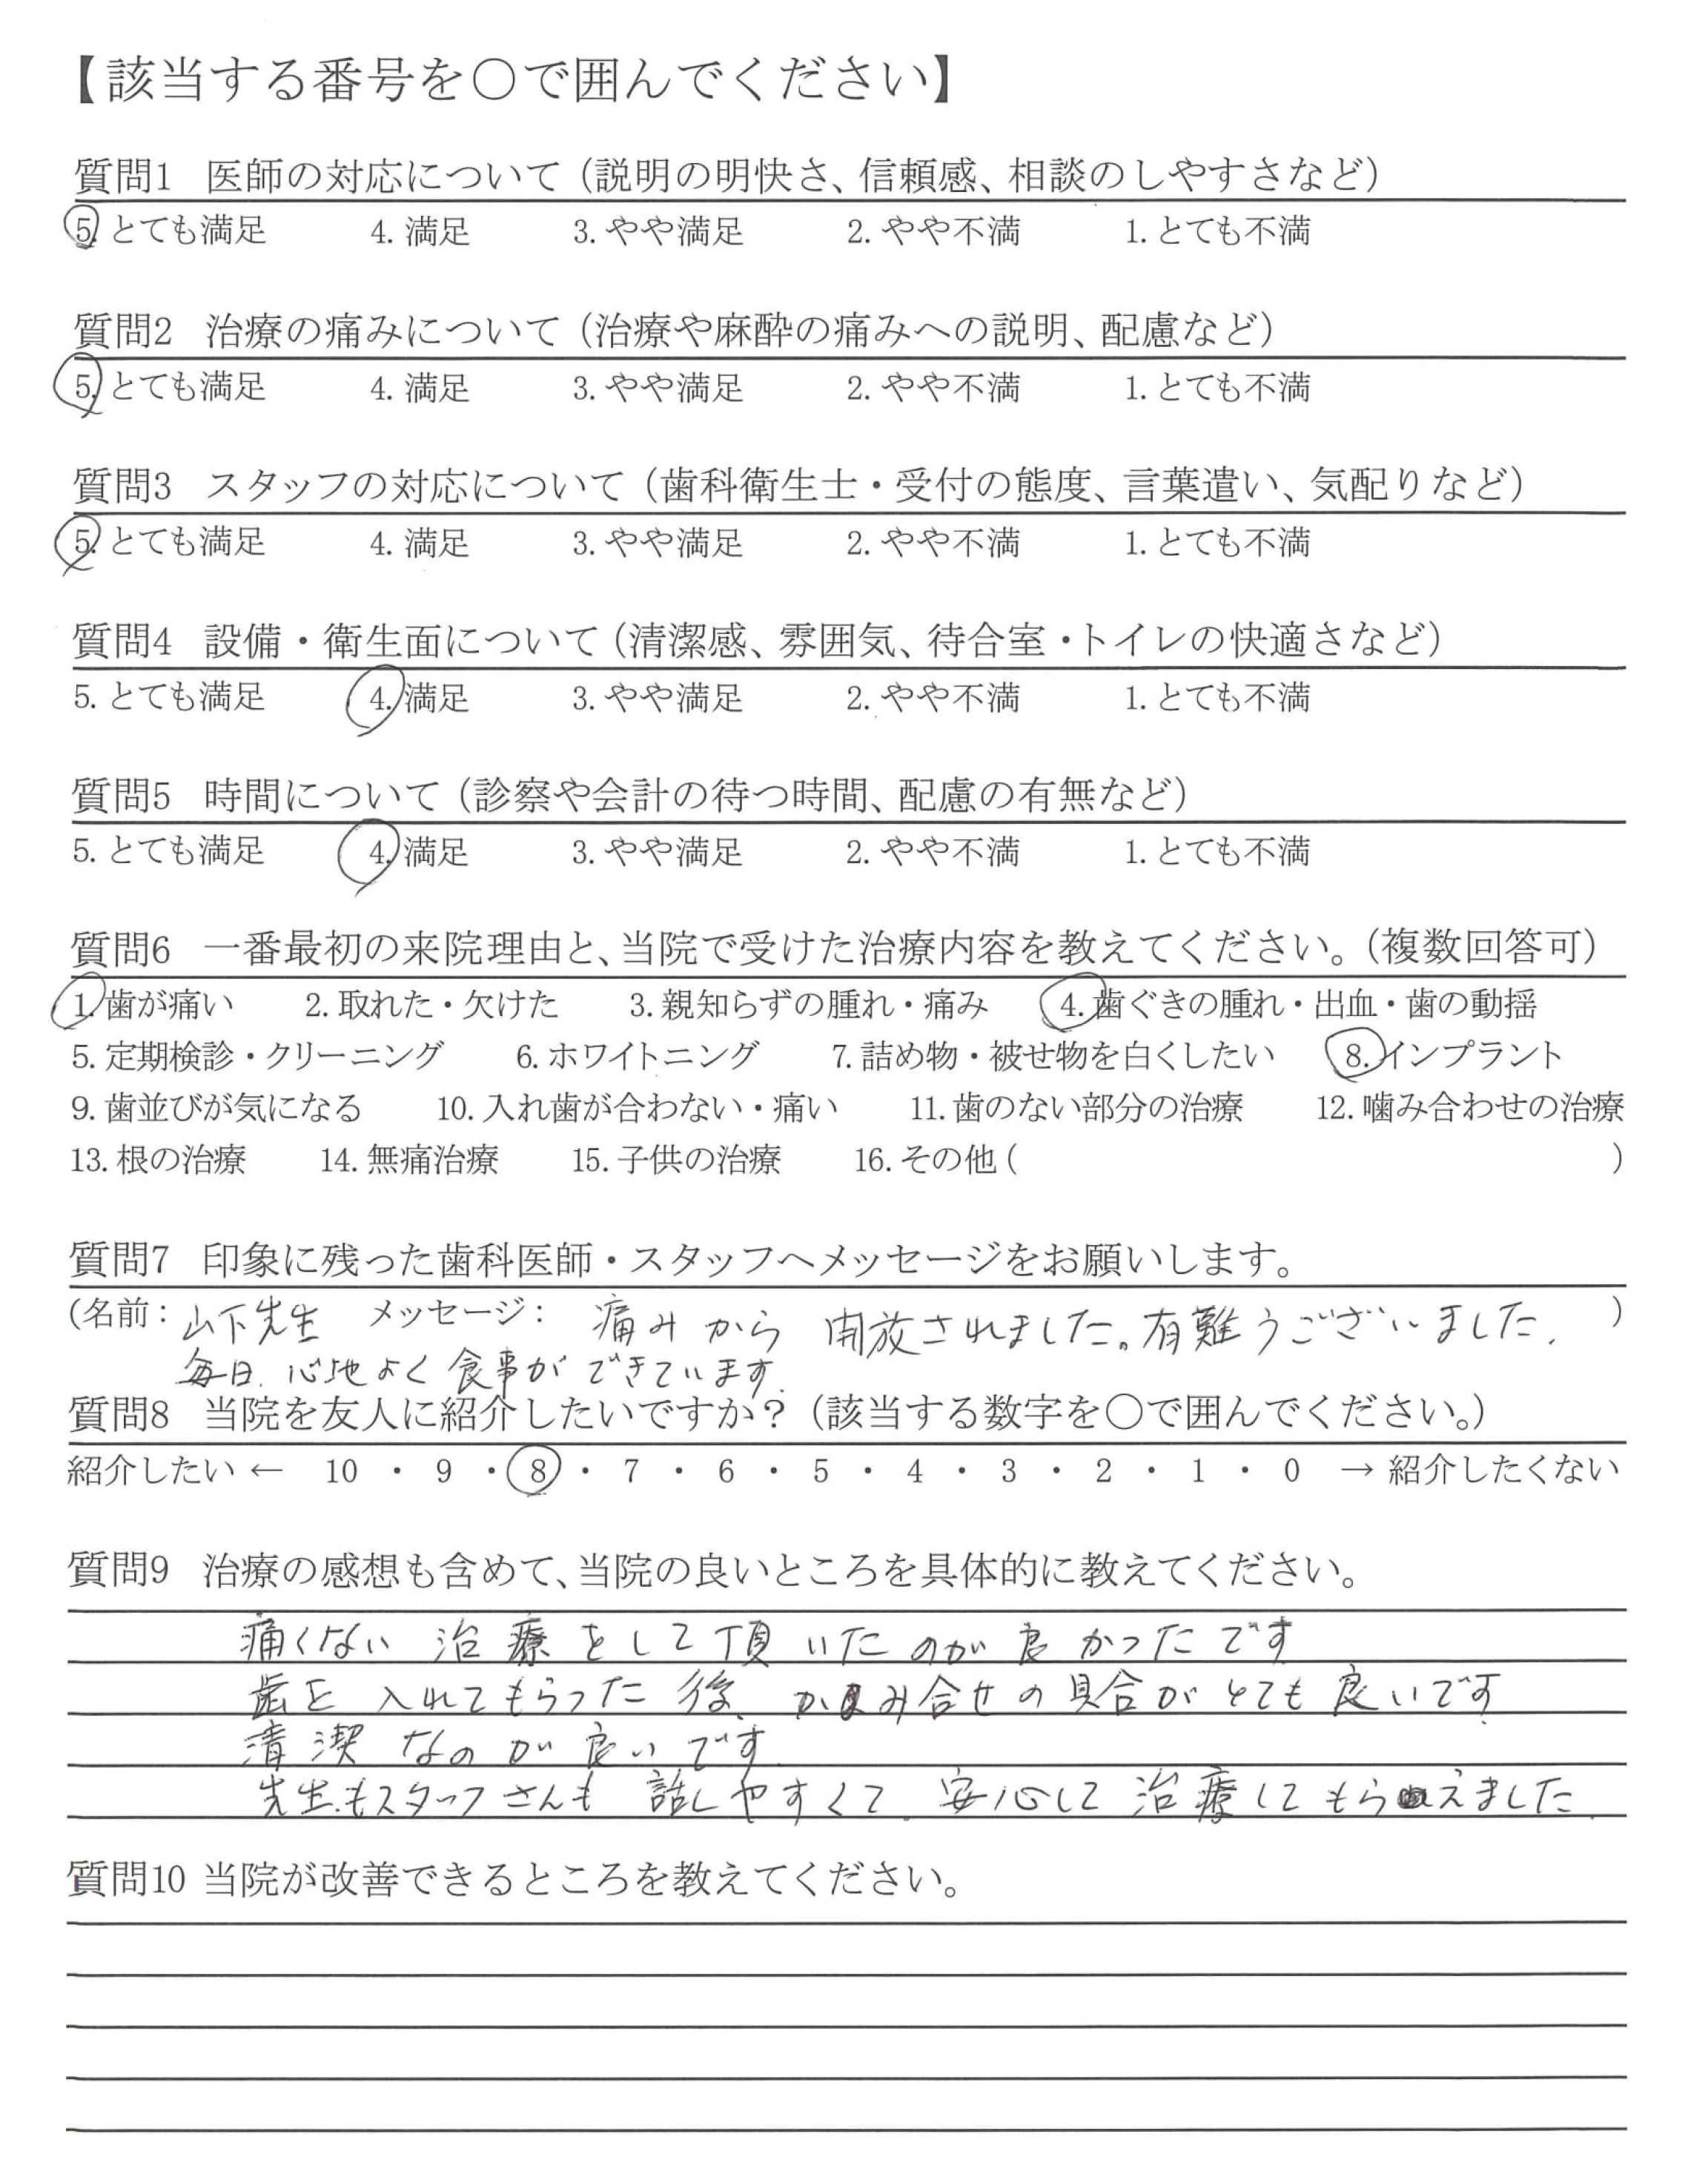 【該当する番号を○で囲んでください】
質問1 医師の対応について（説明の明快さ、信頼感、相談のしやすさなど）
5. とても満足 4. 満足 3. やや満足 2. やや不満 1. とても不満
質問2 治療の痛みについて（治療や麻酔の痛みへの説明、配慮など）
5. とても満足 4. 満足 3. やや満足 2. やや不満 1. とても不満
質問3 スタッフの対応について（歯科衛生士・受付の態度、言葉遣い、気配りなど）
5. とても満足 4. 満足 3. やや満足 2. やや不満 1. とても不満
質問4 設備・衛生面について（清潔感、雰囲気、待合室・トイレの快適さなど）
5. とても満足 4. 満足 3. やや満足 2. やや不満 1. とても不満
質問5 時間について（診察や会計の待つ時間、配慮の有無など）
5. とても満足 4. 満足 3. やや満足 2. やや不満 1. とても不満
質問6 一番最初の来院理由と、当院で受けた治療内容を教えてください。（複数回答可）
1. 歯が痛い 2. 取れた・欠けた 3. 親知らずの腫れ・痛み 4. 歯ぐきの腫れ・出血・歯の動揺
5. 定期検診・クリーニング 6. ホワイトニング 7. 詰め物・被せ物を白くしたい 8. インプラント
9. 歯並びが気になる 10. 入れ歯が合わない・痛い 11. 歯のない部分の治療 12. 噛み合わせの治療
13. 根の治療 14. 無痛治療 15. 子供の治療 16. その他（ ）
質問7 印象に残った歯科医師・スタッフへメッセージをお願いします。
（名前： 山下先生 メッセージ： 痛みから 開放されました。有難うございました. ）
毎日. 心地よく食事ができています.
質問8 当院を友人に紹介したいですか？（該当する数字を○で囲んでください。）
紹介したい ← 10 ・ 9 ・ 8 ・ 7 ・ 6 ・ 5 ・ 4 ・ 3 ・ 2 ・ 1 ・ 0 → 紹介したくない
質問9 治療の感想も含めて、当院の良いところを具体的に教えてください。
痛くない 治療をして頂いたのが良かったです
歯を入れてもらった後、かみ合せの具合がとても良いです.
清潔なのが良いです.
先生もスタッフさんも 話しやすくて. 安心して治療してもらえました.
質問10 当院が改善できるところを教えてください。